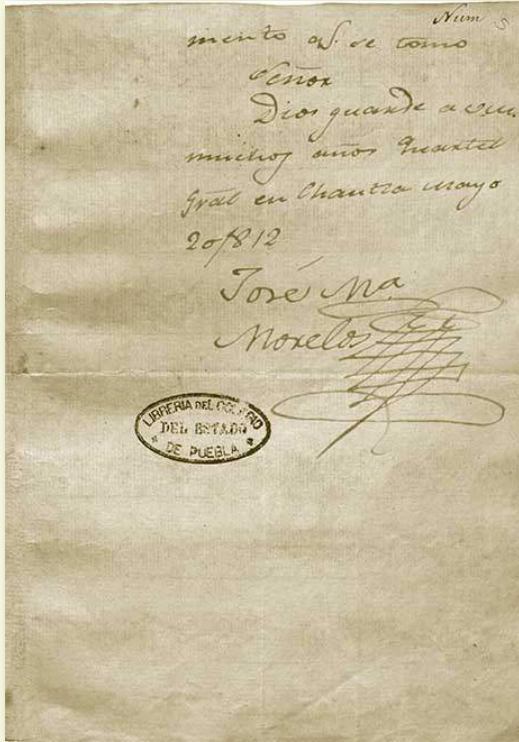 Num 5
miento
Señor
Dios guarde a
muchos años Quartel
Gral en Chautla Mayo
20/812
José Ma.
Morelos
LIBRERIA DEL COLEGIO
DEL ESTADO
* DE PUEBLA *